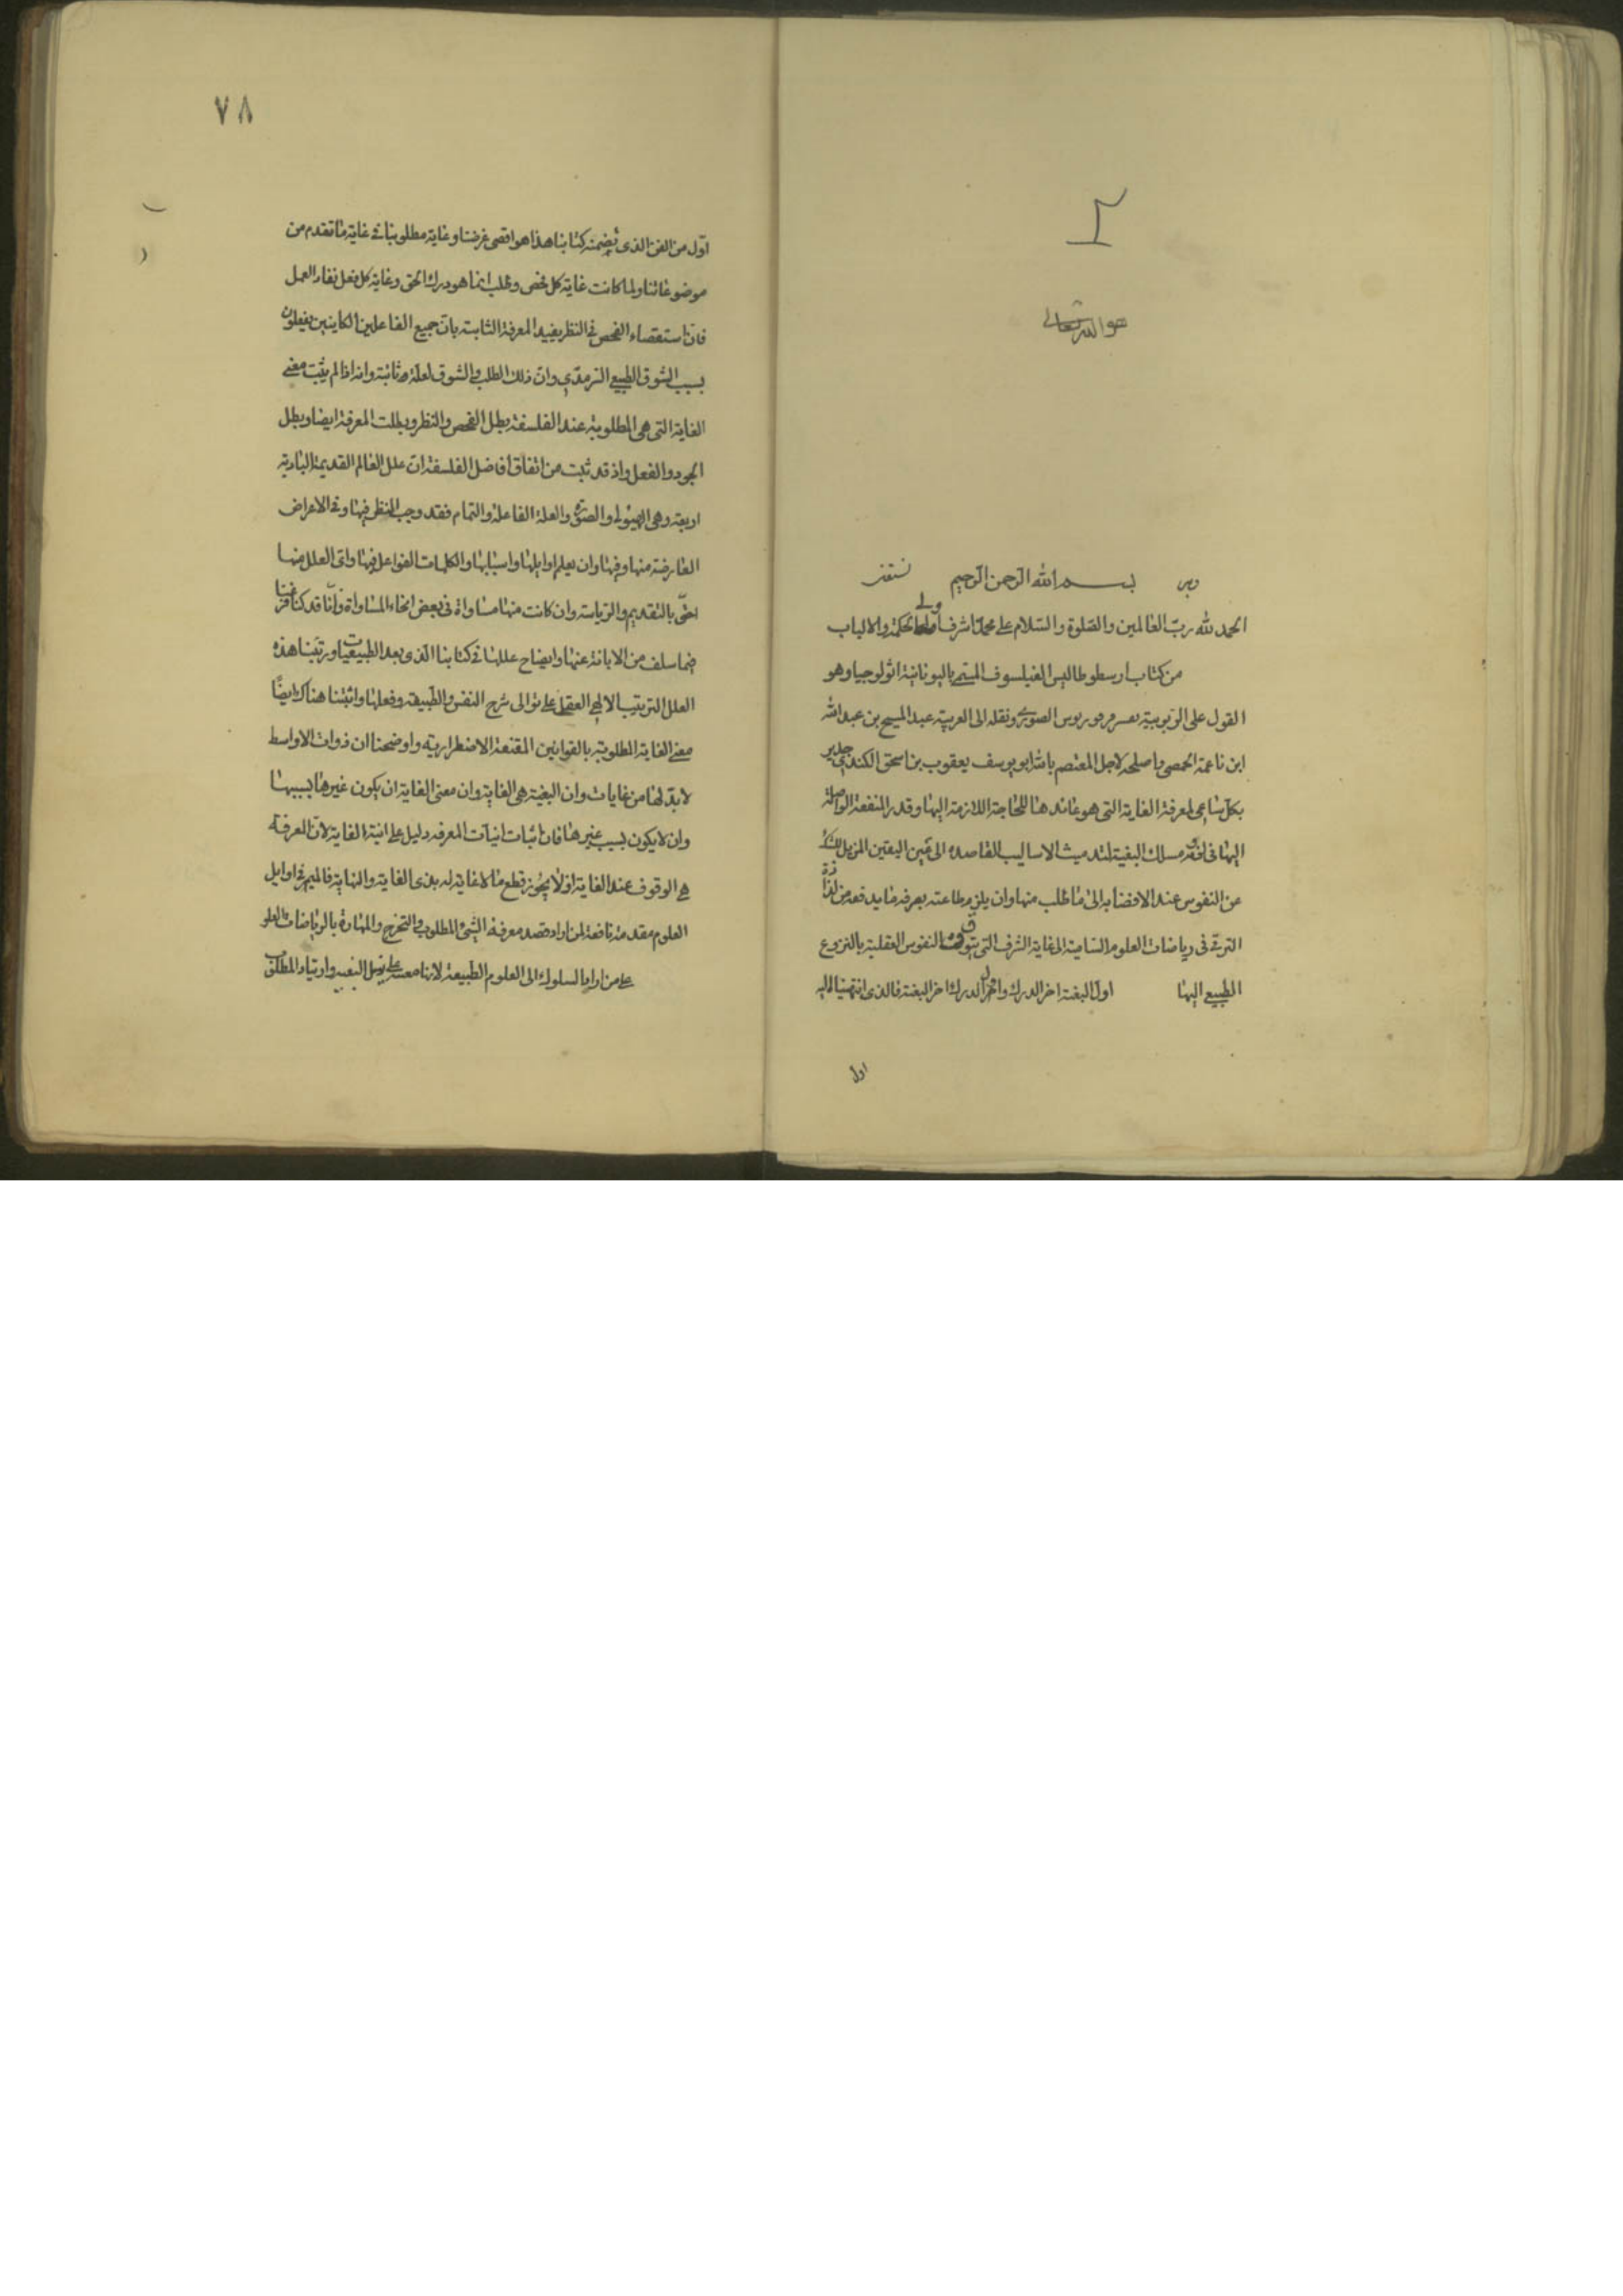 ٢
هو الله تعالى
وبه بسم الله الرحمن الرحيم نستعين
الحمد لله ربّ العالمين والصّلوة والسّلام على محمّد اشرف اولى الحكمة والالباب
من كتاب ارسطوطاليس الفيلسوف المسمّى باليونانيّة اثولوجيا وهو
القول على الرّبوبيّة تفسير فرفوريوس الصوري ونقله الى العربيّة عبد المسيح بن عبد الله
ابن ناعمة الحمصي واصلحه لاجل المعتصم بالله ابو يوسف يعقوب بن اسحق الكندي جدير
بكل ساعى لمعرفة الغاية التى هو عائدها للحاجة اللازمة اليها وقدر المنفعة الواصلة
اليها فى مسلك البغية لتدميث الاساليب القاصده الى عين اليقين المزيل للشك
عن النفوس عند الافضا به الى ما طلب منها وان يلزم طاعته بعرفه ما يدقعه من لذاذة
الترقّى فى رياضات العلوم السّامية الى غاية الشرف التى يتوق النفوس العقلية بالنزوع
الطبيعى اليها اول البغية اخر الدرك واول الدرك اخر البغية فالذى انتهينا اليه
اول
٧٨
اوّل من الفن الذى تضمنه كتابنا هذا هو اقصى غرضنا وغاية مطلوبنا فى غاية ما تقدم من
موضوعاتنا ولما كانت غاية كل فحص وطلب انما هو درك الحق وغاية كل فعل نفاد العمل
فان استقصاء الفحص فى النظر يفيد المعرفة الثابتة بان جميع الفاعلين الكاينين يفعلون
بسبب الشوق الطبيعى السرمدى وان ذلك الطلب والشوق لعلة ثانية وانه اذا لم يثبت معنى
الغاية التى هى المطلوبة عند الفلسفة بطل الفحص والنظر وبطلت المعرفة ايضا وبطل
الجود والفعل واذ قد ثبت من اتفاق افاضل الفلسفة ان علل العالم القديمة البادية
اربعة وهى الهيولى والصورة والعلة الفاعلة والتمام فقد وجب النظر فيها وفى الاعراض
العارضة منها وفيها وان يعلم اوايلها واسبابها والكلمات الفواعل فيها واى العلل منها
احقّ بالتقديم والرّياسة وان كانت منها مساواة فى بعض انحاء المساواة وانّا قد كنا فرغنا
فيما سلف من الابانة عنها وايضاح عللها فى كتابنا الذى بعد الطبيعيات ورتّبنا هذه
العلل الترتيب الالهى العقلى على توالى شرح النفس والطّبيعة وفعلها واثبتنا هناك ايضًا
معنى الغاية المطلوبة بالقوانين المقنعة الاضطرارية واوضحنا ان ذوات الاواسط
لابدّ لها من غايات وان البغية هى الغاية وان معنى الغاية ان يكون غيرها بسببها
وان لا يكون بسبب غيرها فان اثبات انيّات المعرفة دليل على انيّة الغاية لان المعرفة
هى الوقوف عند الغاية اذ لا يجوز قطع ما لا غاية له بذى الغاية والنهاية فالمهم فى اوايل
العلوم مقدمة نافعة لمن اراد قصد معرفة الشىء المطلوب والتخرج والمهارة بالرياضات العلو
على من اراد السلوك الى العلوم الطبيعة لانها معينة على نيل البغية وارتياد المطلوب